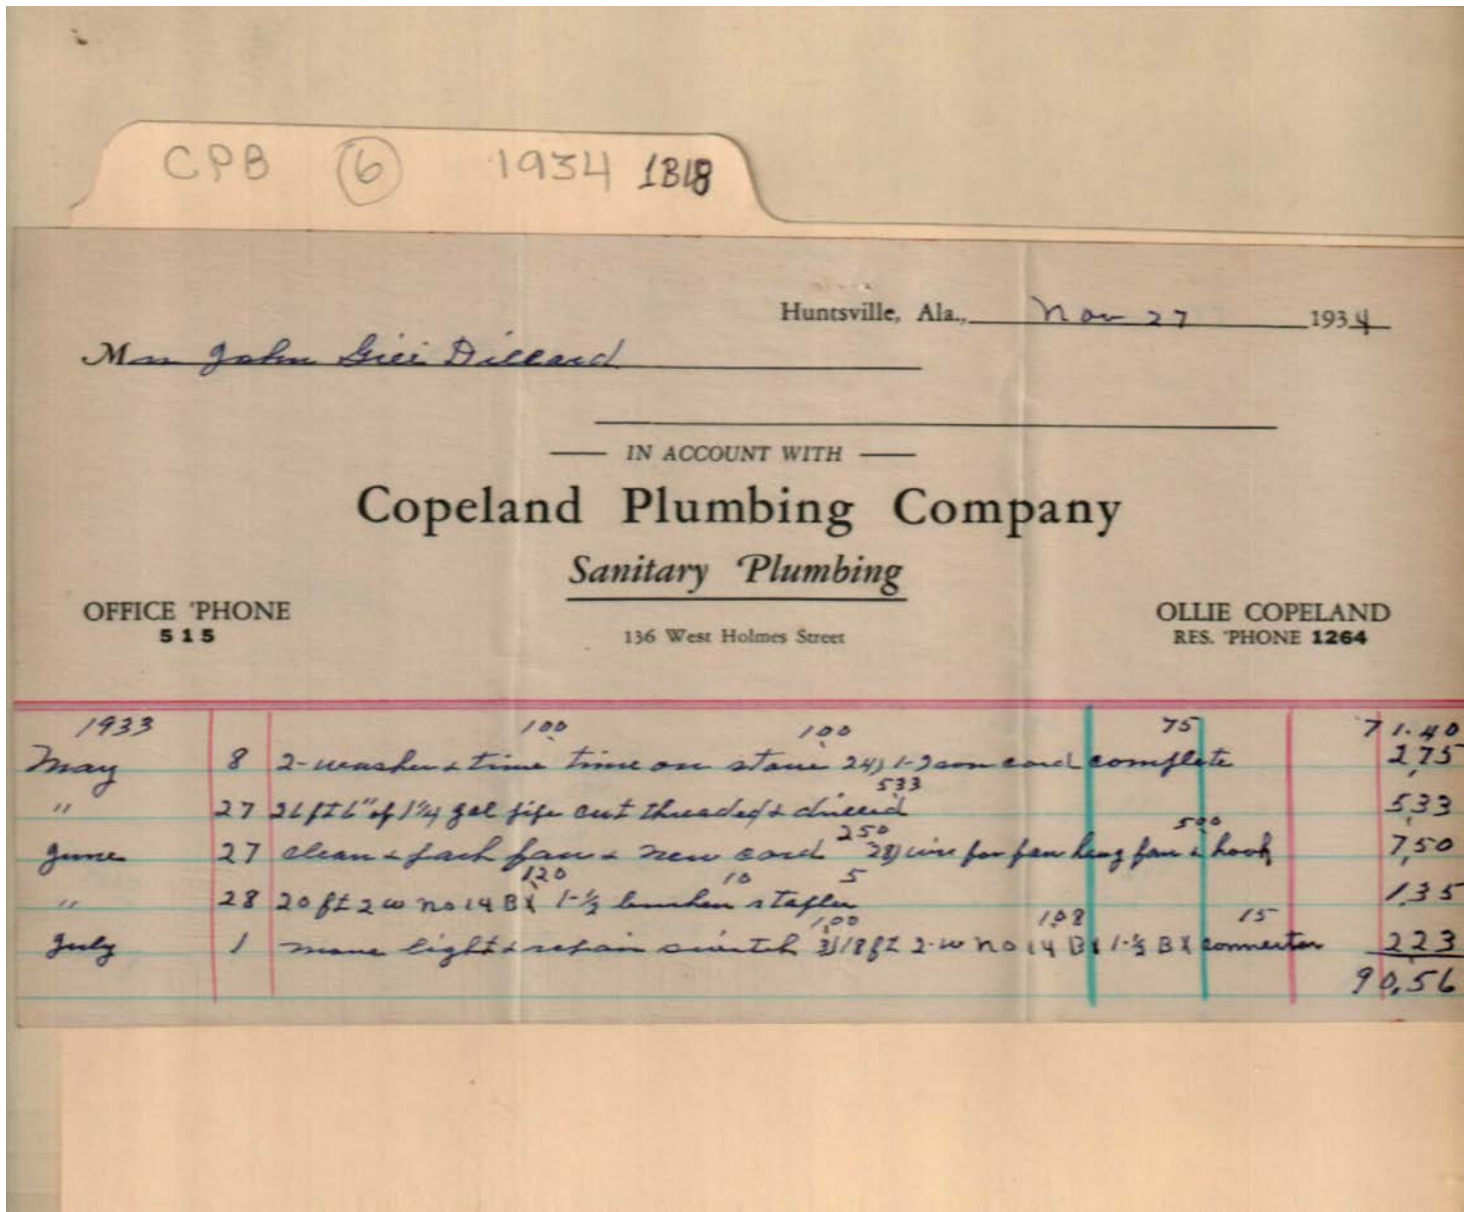 CPB 6 1934 1318
Huntsville, Ala., Nov 27 1934
Mrs John Dillard
IN ACCOUNT WITH
Copeland Plumbing Company
Sanitary Plumbing
OFFICE 'PHONE
515
136 West Holmes Street
OLLIE COPELAND
RES. 'PHONE 1264
1933 100 100 75 71.40
May 8 2-washer & time time on stove 24) 1- cord complete 2,75
533
" 27 26 ft 6" of 1 1/4 gal pipe cut threaded & 5,33
250 500
June 27 clean & pack fan & new cord 28) wire for fan hang fan & hook 7,50
120 10 5
" 28 20 ft 2 w no 14 BX 1-1/2 staples 1,35
1,00 1,08 15
July 1 move light & repair switch 3) 18 ft 2-w no 14 BX 1-1/2 BX connector 2,23
90,56